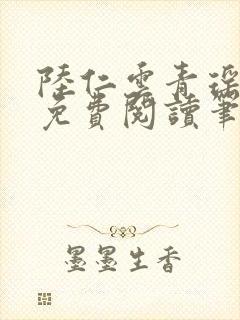 陸仁雲青瑤
免費閱讀筆
墨墨生香